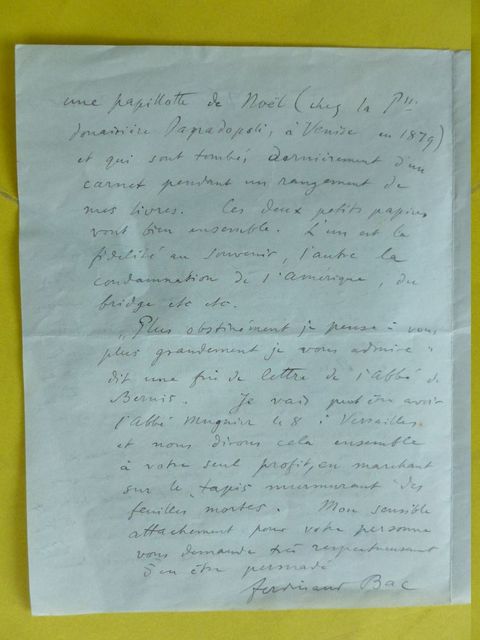 une papillotte de Noël (chez la Psse
douairière Papadopoli, à Venise en 1879)
et qui sont tombés dernièrement d'un
carnet pendant un rangement de
mes livres. Ces deux petits papiers
vont bien ensemble. L'un est la
fidélité au souvenir, l'autre la
condamnation de l'Amérique, du
bridge etc etc.
"Plus obstinément je pense à vous
plus grandement je vous admire"
dit une fin de lettre de l'Abbé de
Bernis. Je vais peut être avoir
l'Abbé Mugnier le 8 à Versailles
et nous dirons cela ensemble
à votre seul profit, en marchant
sur le tapis murmurant des
feuilles mortes. Mon sensible
attachement pour votre personne
vous demande très respectueusement
d'en être persuadé
Ferdinand Bac